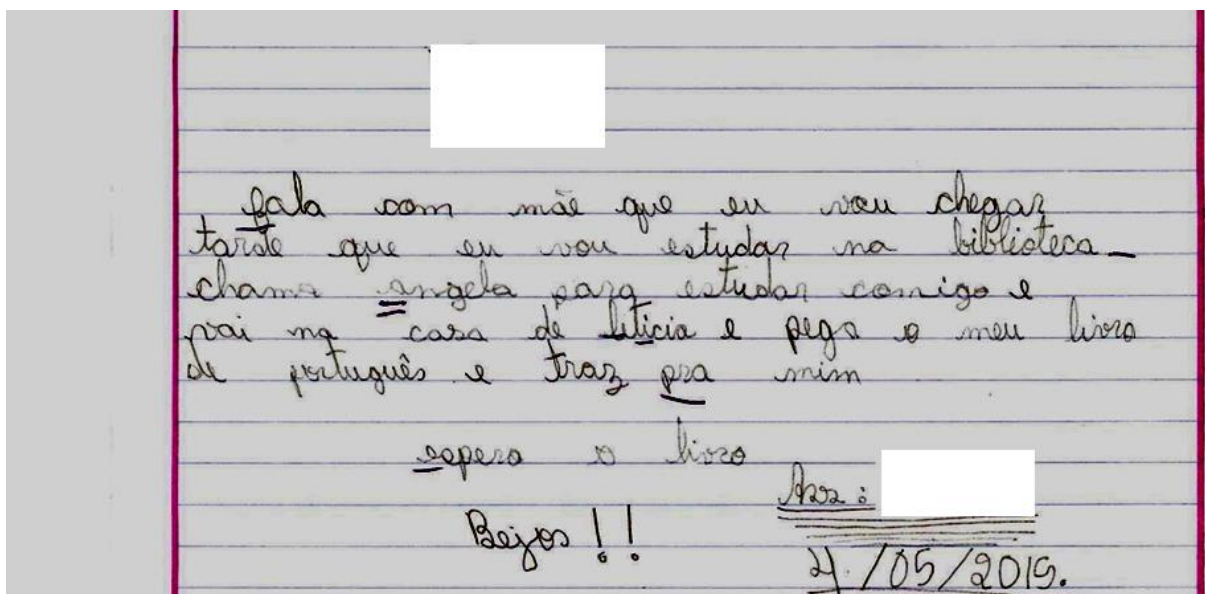 fala com mãe que eu vou chegar
tarde que eu vou estudar na biblioteca
chama angela para estudar comigo e
vai na casa de leticia e pega o meu livro
de português e traz pra mim
espero o livro
Ass:
Beijos!!
4/05/2019.